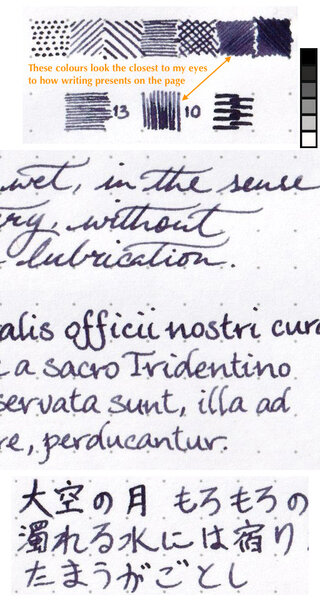 These colours look the closest to my eyes
to how writing presents on the page
13 10
wet, in the sense
ry, without
lubrication.
alis officii nostri cura
a sacro Tridentino
servata sunt, illa ad
re, perducantur.
大空の月 もろもろの
濁れる水には宿り
たまうがごとし